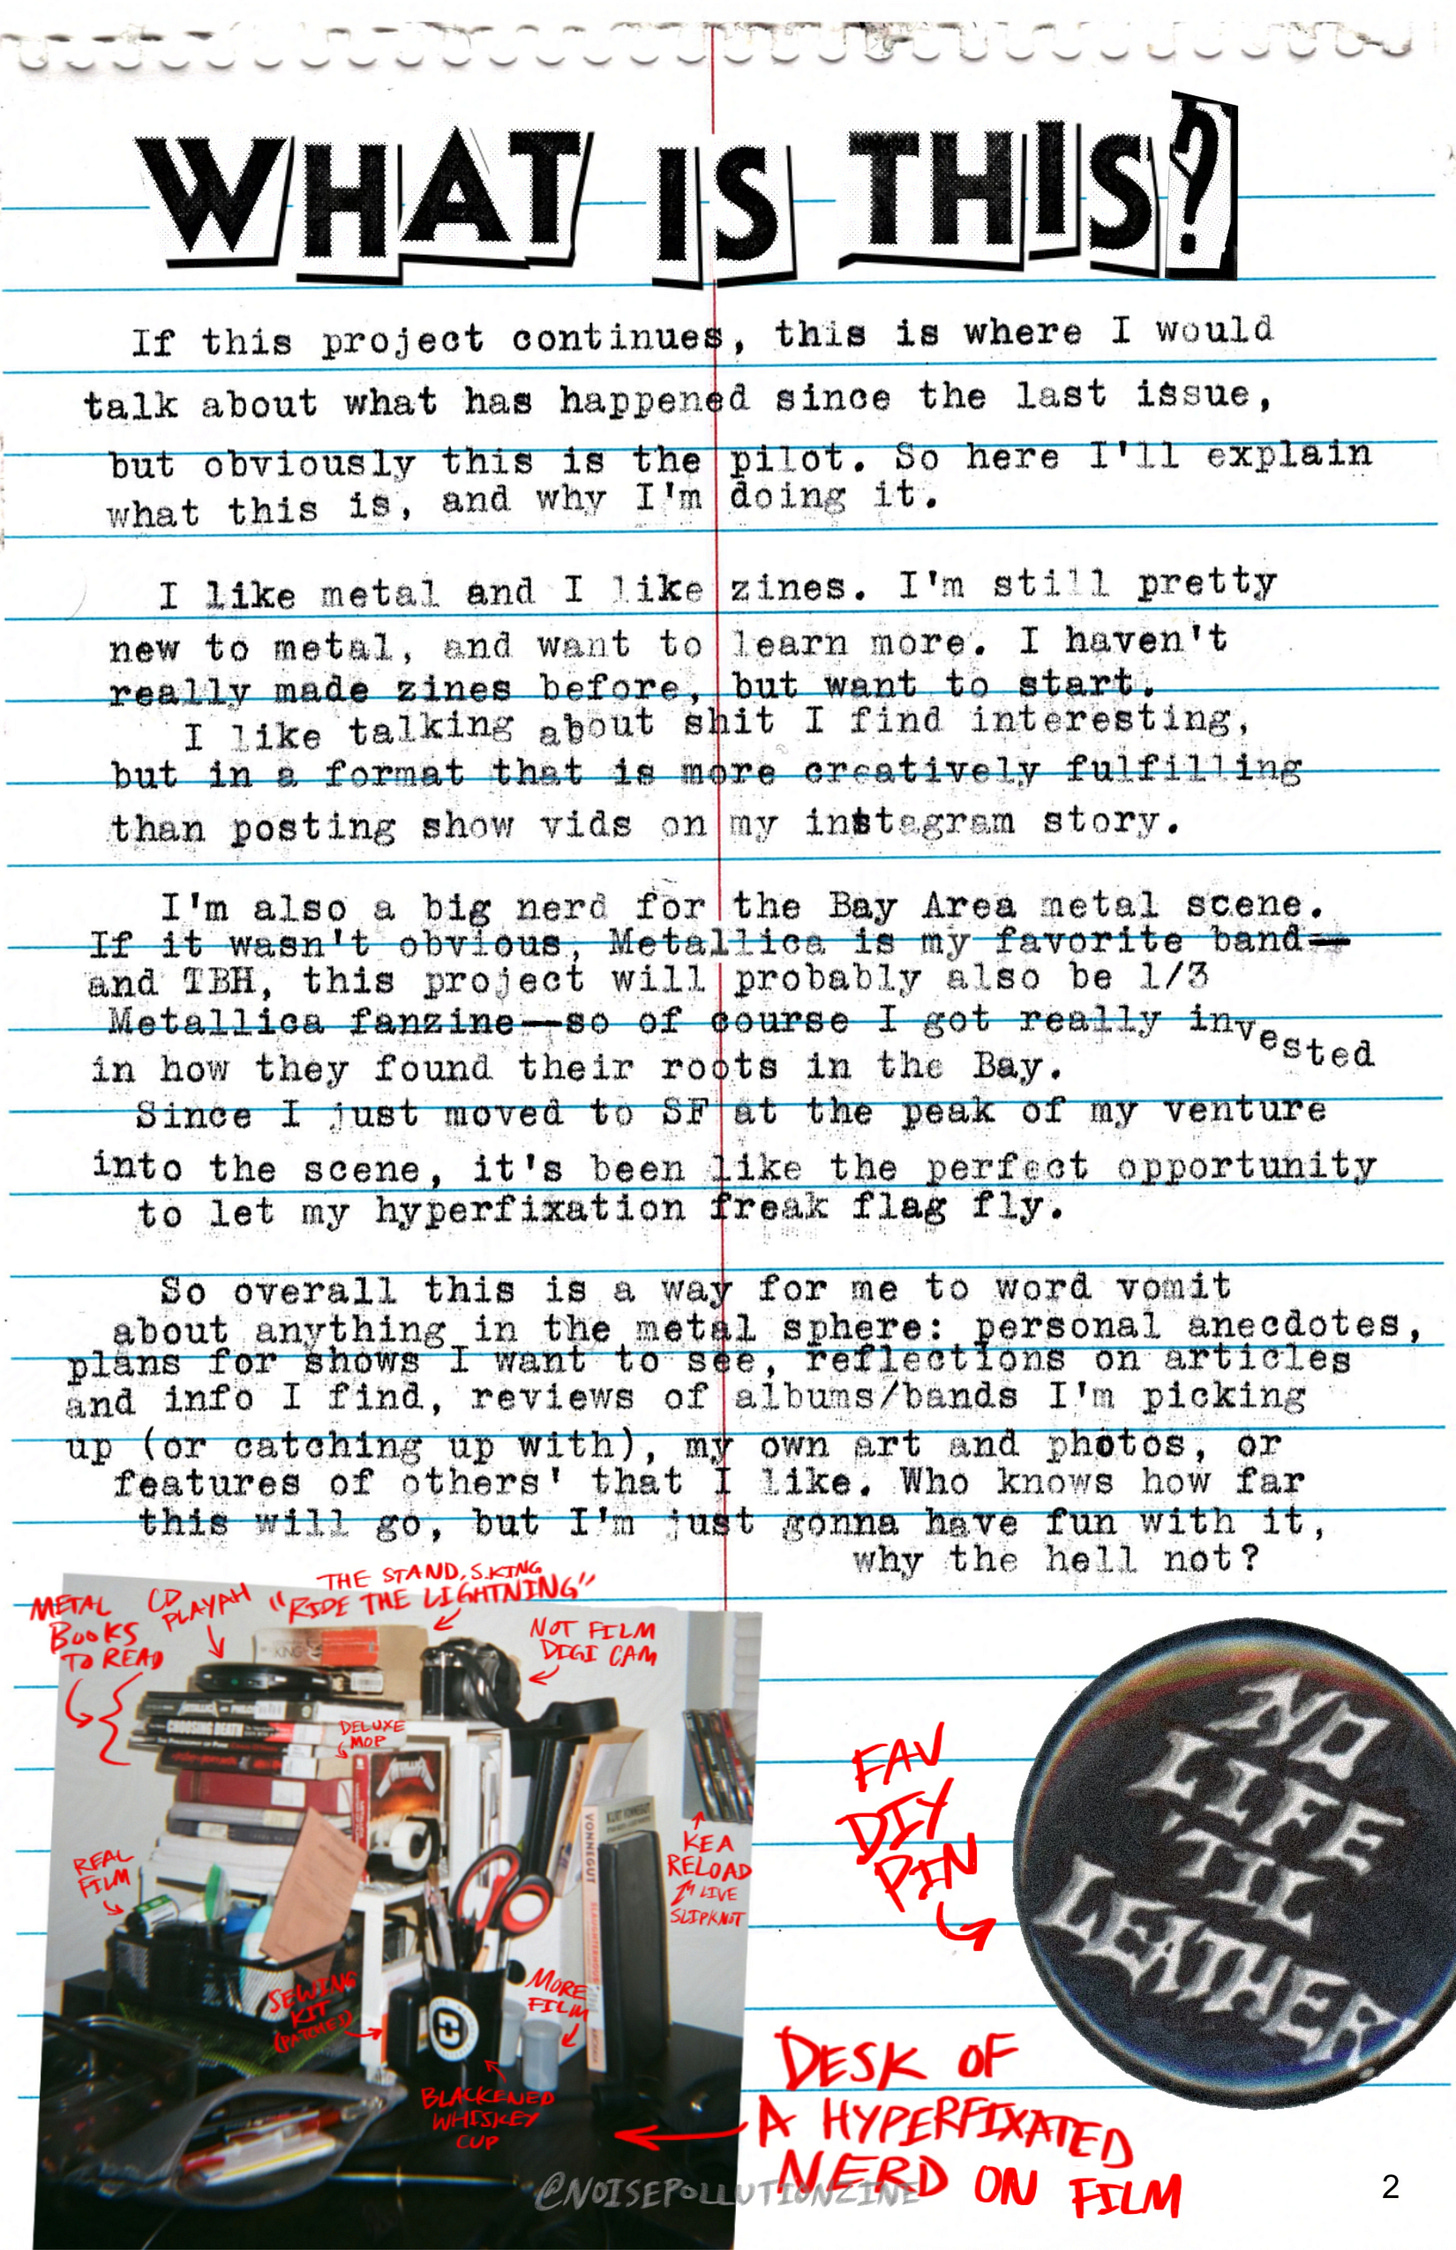 WHAT IS THIS?
If this project continues, this is where I would
talk about what has happened since the last issue,
but obviously this is the pilot. So here I'll explain
what this is, and why I'm doing it.
I like metal and I like zines. I'm still pretty
new to metal, and want to learn more. I haven't
really made zines before, but want to start.
I like talking about shit I find interesting,
but in a format that is more creatively fulfilling
than posting show vids on my instagram story.
I'm also a big nerd for the Bay Area metal scene.
If it wasn't obvious, Metallica is my favorite band—
and TBH, this project will probably also be 1/3
Metallica fanzine—so of course I got really invested
in how they found their roots in the Bay.
Since I just moved to SF at the peak of my venture
into the scene, it's been like the perfect opportunity
to let my hyperfixation freak flag fly.
So overall this is a way for me to word vomit
about anything in the metal sphere: personal anecdotes,
plans for shows I want to see, reflections on articles
and info I find, reviews of albums/bands I'm picking
up (or catching up with), my own art and photos, or
features of others' that I like. Who knows how far
this will go, but I'm just gonna have fun with it,
why the hell not?
METAL
BOOKS
TO READ
CD
PLAYAH
THE STAND, S.KING
"RIDE THE LIGHTNING"
NOT FILM
DIGI CAM
KING
CHOOSING DEATH
DELUXE
MOP
METALLICA
KURT VONNEGUT
VONNEGUT
REAL
FILM
KEA
RELOAD
LIVE
SLIPKNOT
SEWING
KIT
(PATCHED)
MORE
FILM
BLACKENED
WHISKEY
CUP
FAV
DIY
PIN
NO
LIFE
'TIL
LEATHER!
DESK OF
A HYPERFIXATED
NERD ON FILM
@NOISEPOLLUTIONZINE
2